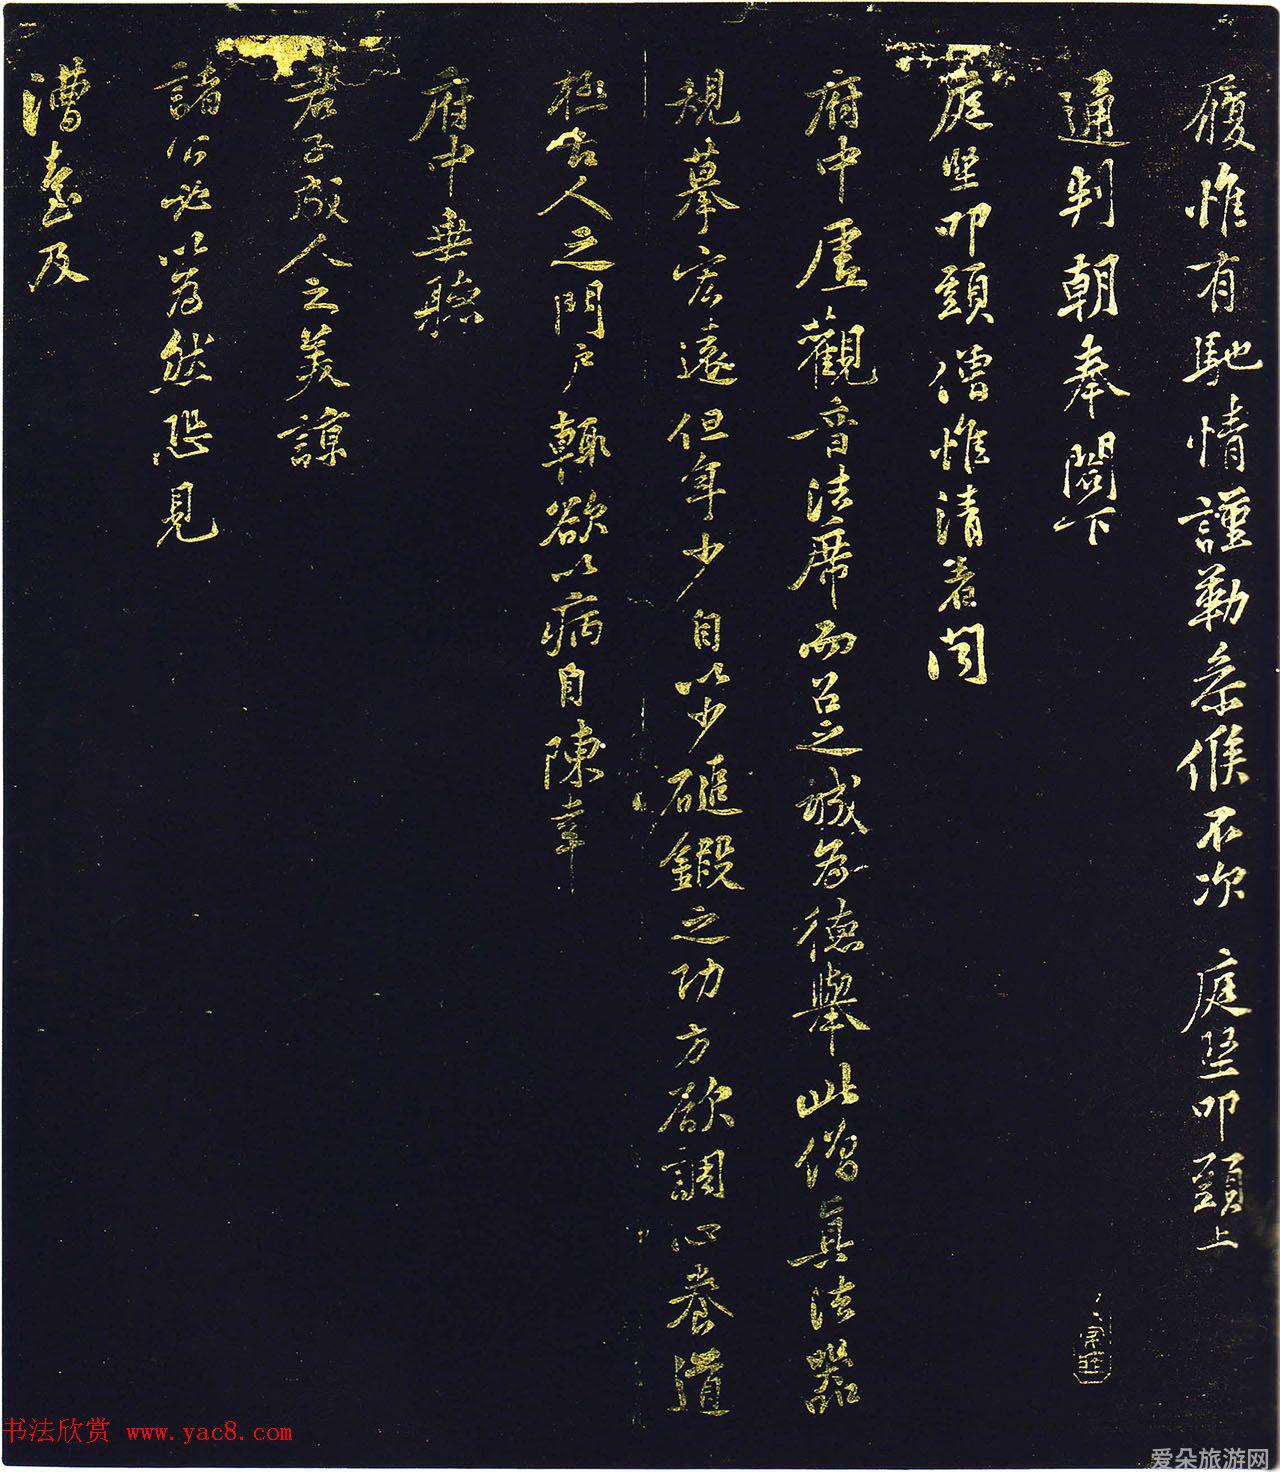 履惟有馳情謹勒叅候不次 庭堅叩頭上
通判朝奉閤下
庭堅叩頭僧惟清者聞
府中虛觀音法席而召之誠為德舉此僧真法器
規摹宏遠但年少自以少磓鍛之功方欲調心養道
極古人之門戶輒欲以病自陳幸
府中垂聽
君子成人之美諒
諸公必以為然恐見
漕臺及
书法欣赏 www.yac8.com
爱朵旅游网